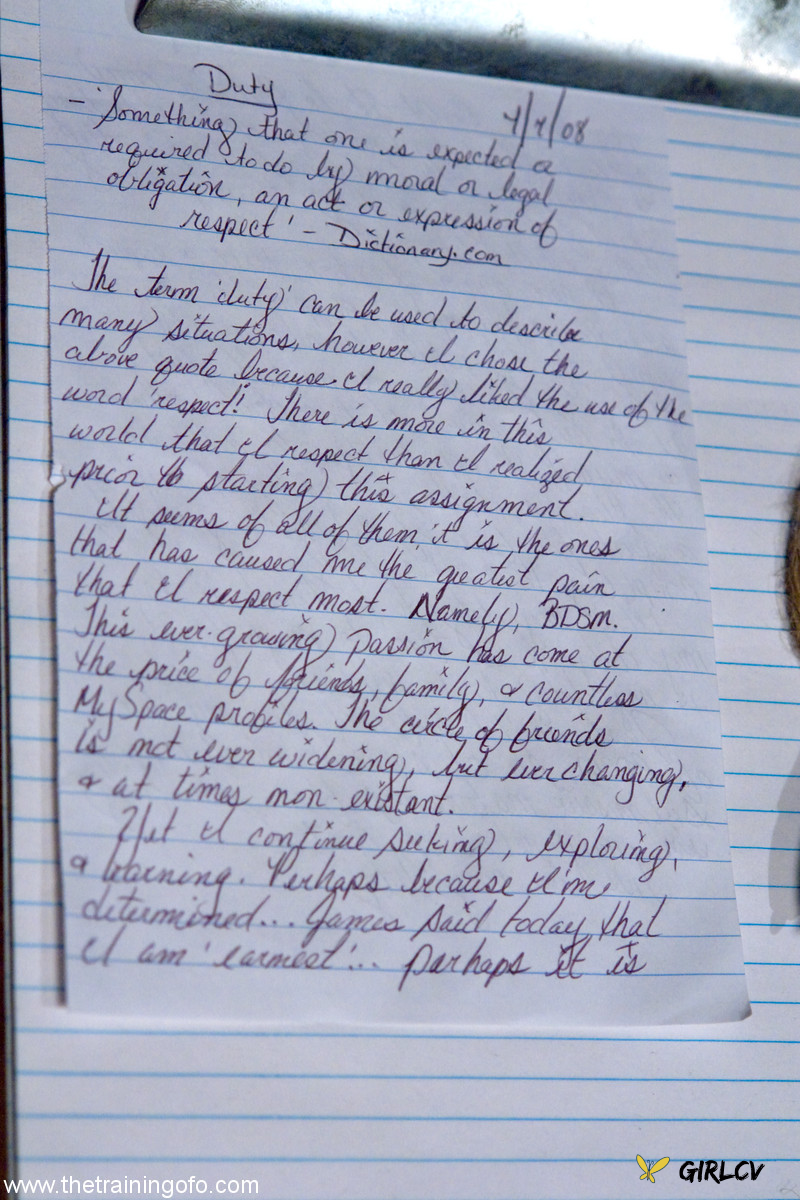 Duty
4/7/08
- 'Something that one is expected or
required to do by moral or legal
obligation, an act or expression of
respect' - Dictionary.com
The term 'duty' can be used to describe
many situations, however I chose the
above quote because I really liked the use of the
word 'respect'! There is more in this
world that I respect than I realized
prior to starting this assignment.
It seems of all of them it is the ones
that has caused me the greatest pain
that I respect most. Namely, BDSM.
This ever-growing passion has come at
the price of friends, family, & countless
MySpace profiles. The circle of friends
is not ever widening, but ever changing,
& at times non-existant.
Yet I continue seeking, exploring,
& learning. Perhaps because I'm
determined... James said today that
I am 'earnest'... perhaps it is
www.thetrainingofo.com
GIRLCV